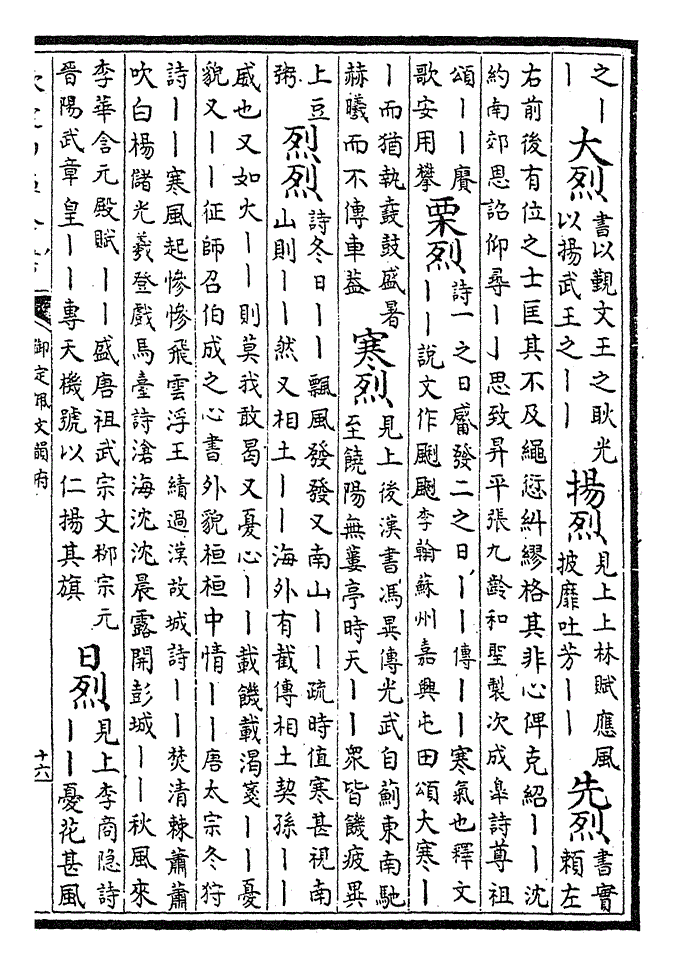 之丨
丨
大烈
書以覲文王之耿光
以揚武王之丨丨
揚烈
見上上林賦應風
披靡吐芳丨丨
先烈
書實
賴左
右前後有位之士匡其不及繩愆糾繆格其非心俾克紹丨丨沈
約南郊恩詔仰尋丨丨思致昇平張九齡和聖製次成皋詩尊祖
頌丨丨賡
歌安用攀
栗烈
詩一之日觱發二之日丨丨傳丨丨寒氣也釋文
丨丨說文作颲颲李翰蘇州嘉興屯田頌大寒丨
丨而猶執鼖鼓盛暑
赫曦而不傳車蓋
寒烈
見上後漢書馮異傳光武自薊東南馳
至饒陽無蔞亭時天丨丨衆皆饑疲異
上豆
粥
烈烈
詩冬日丨丨飄風發發又南山丨丨疏時值寒甚視南
山則丨丨然又相土丨丨海外有截傳相土契孫丨丨
威也又如火丨丨則莫我敢曷又憂心丨丨載饑載渴箋丨丨憂
貌又丨丨征師召伯成之心書外貌桓桓中情丨丨唐太宗冬狩
詩丨丨寒風起慘慘飛雲浮王績過漢故城詩丨丨焚清棘蕭蕭
吹白楊儲光羲登戲馬臺詩滄海沈沈晨露開彭城丨丨秋風來
李華含元殿賦丨丨盛唐祖武宗文柳宗元
晉陽武章皇丨丨專天機號以仁揚其旗
日烈
見上李商隐詩
丨丨憂花甚風
御定佩文韻府
十六